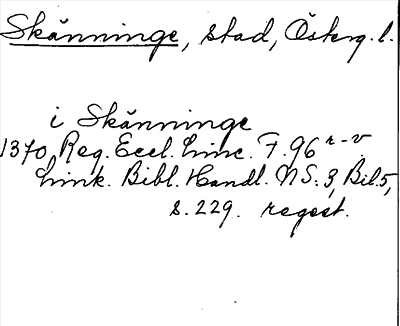 Skänninge, stad, Österg. l.
i Skänninge
1370, Reg. Eccl. Linc. F. 96 r-v
Link. Bibl. Handl. NS: 3, Bil. 5,
s. 229. regest.